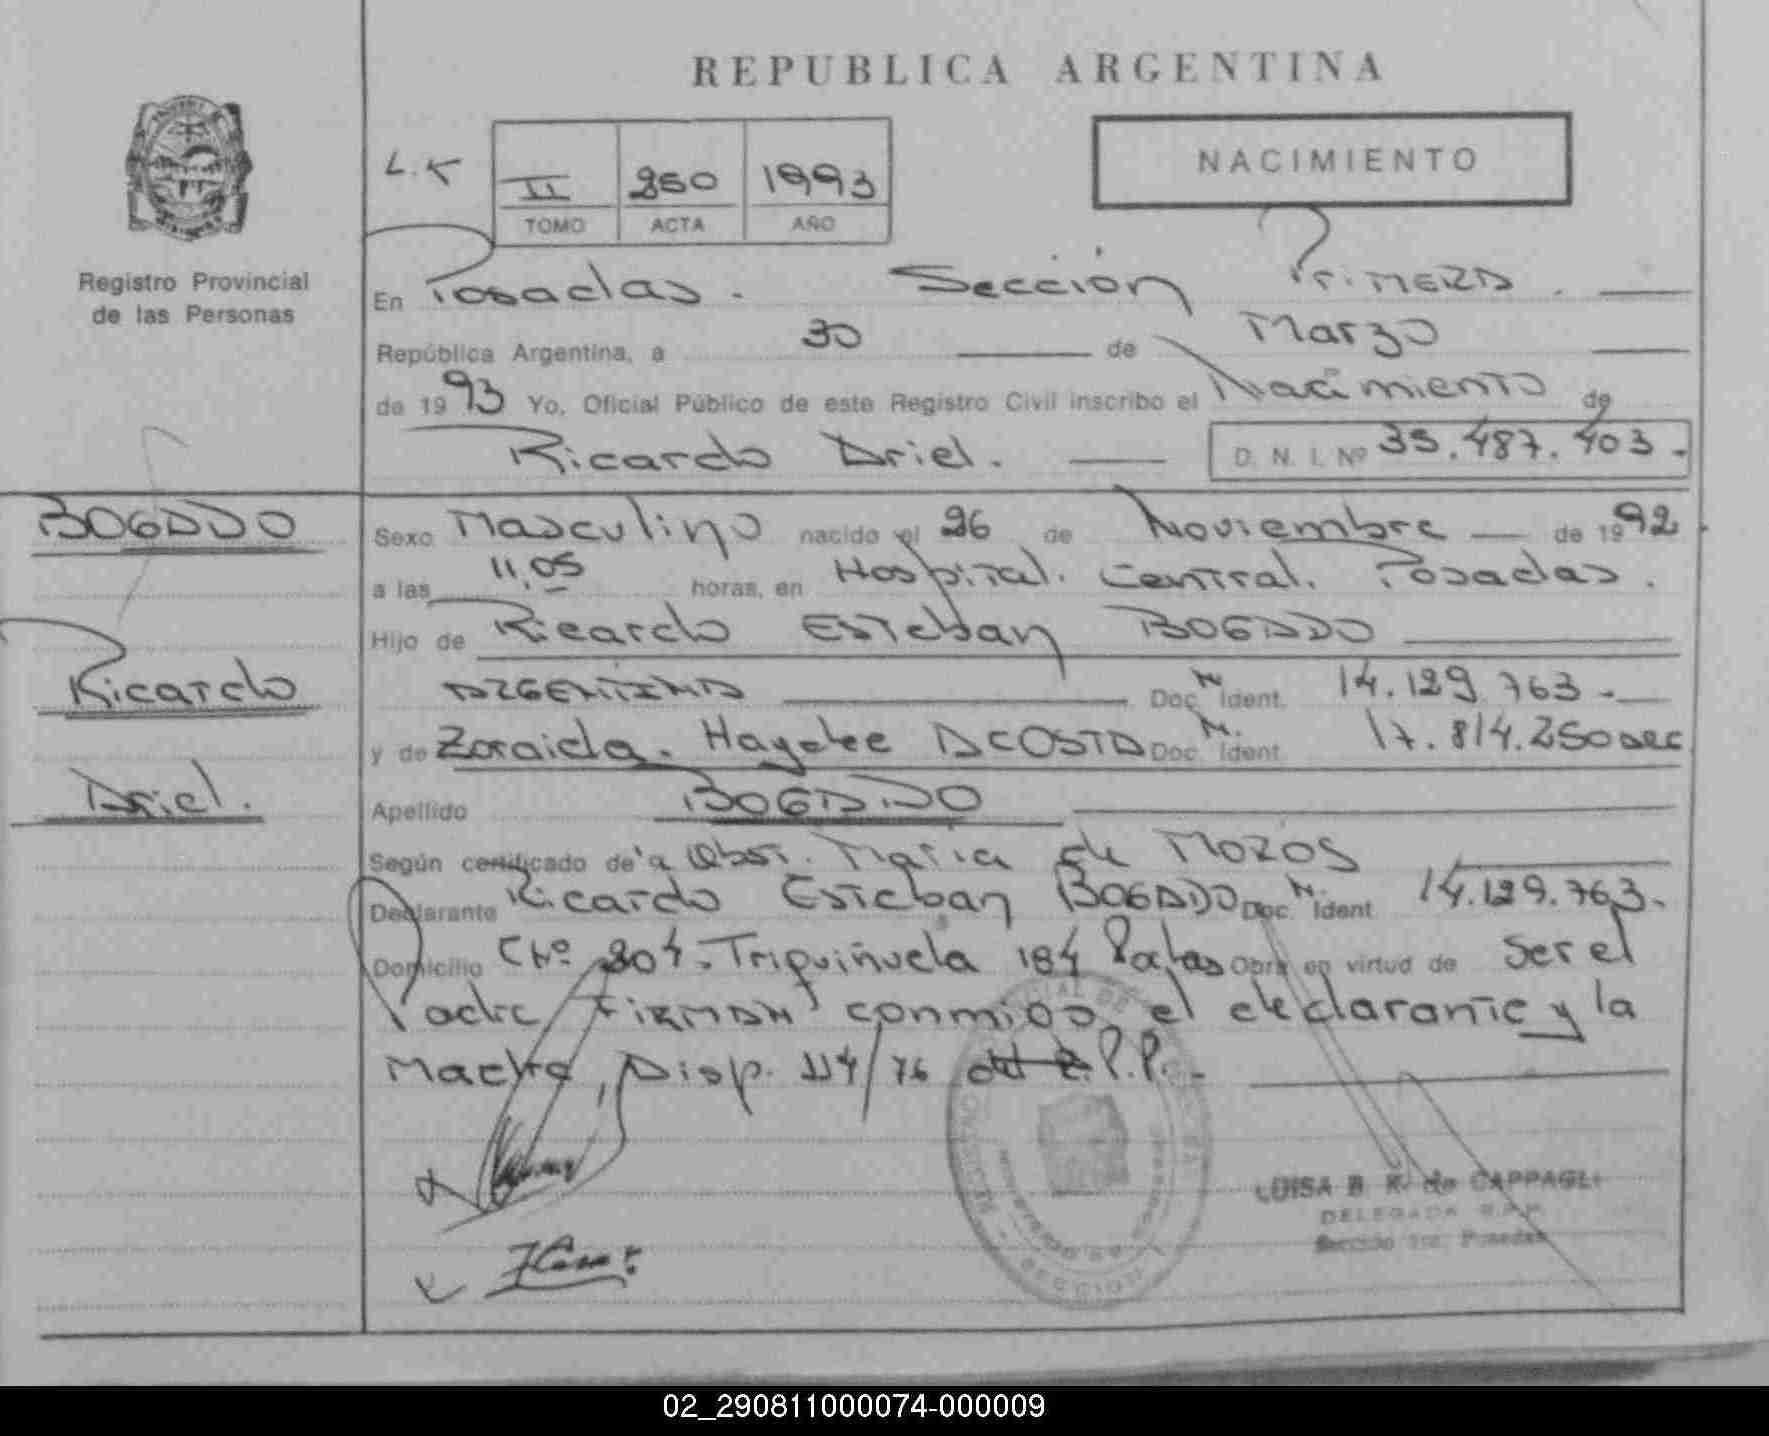 REPUBLICA ARGENTINA
NACIMIENTO
L.K
II 250 1993
TOMO ACTA AÑO
Registro Provincial
de las Personas
En Posadas. Sección Primera.
República Argentina, a 30 de Marzo
de 1993 Yo, Oficial Público de este Registro Civil inscribo el Nacimiento de
Ricardo Ariel. D. N. I. Nº 35.487.403.-
BOGADO
Ricardo
Ariel.
Sexo Masculino nacido el 26 de Noviembre de 1992
a las 11,05 horas, en Hospital. Central. Posadas.
Hijo de Ricardo Esteban BOGADO
ARGENTINA Doc. N. Ident. 14.129.763.-
y de Zoraida. Haydee ACOSTA Doc. N. Ident. 17.814.250
Apellido BOGADO
Según certificado de la Obst. Maria de MOZOS
Declarante Ricardo Esteban BOGADO Doc. N. Ident. 14.129.763.-
Domicilio Chº 204. Triquiñuela 184 Obra en virtud de Ser el
Padre FIRMAN conmigo el declarante y la
Madre, Disp. 114/76 R.P.P.-
LUISA B. K. de CAPPAGLI
DELEGADA R.P.P.
Sección 1ra. Posadas
02_290811000074-000009